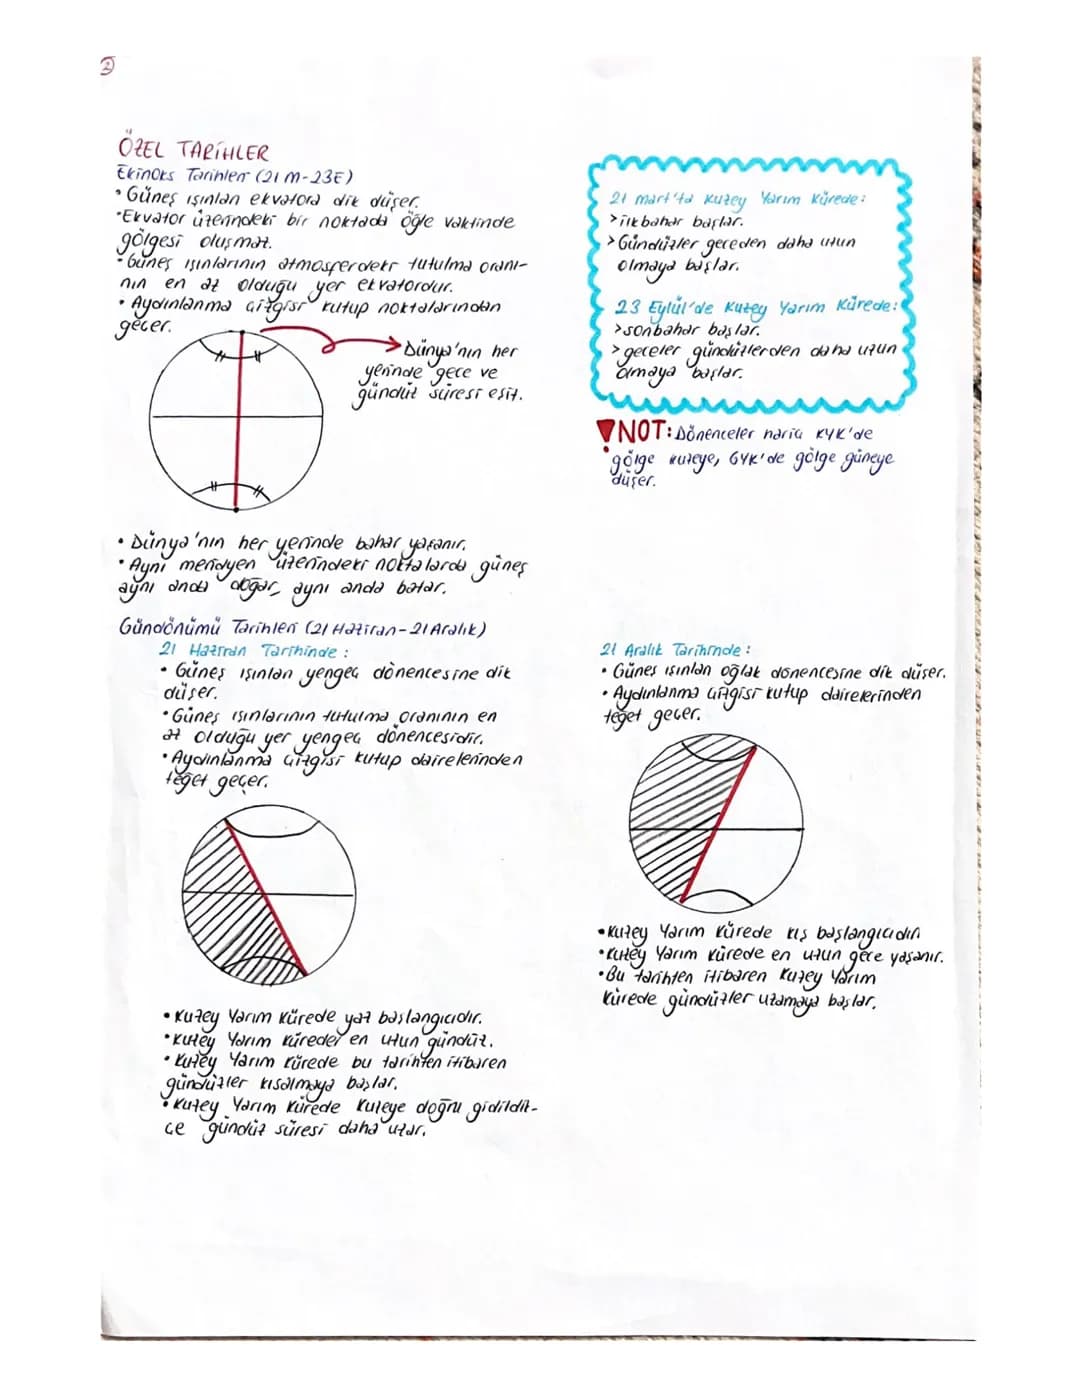 2
ÖZEL TARİHLER
Ekinoks Tarihleri (21 M-23E)
• Güneş ışınları ekvatora dik düşer.
• Ekvator üzerindeki bir noktada öğle vaktinde
gölgesi oluşmaz.
• Güneş ışınlarının atmosferdeki tutulma oranı-
nın en az olduğu yer ekvatordur.
• Aydınlanma çizgisi kutup noktalarından
geçer.
Dünya'nın her
yerinde gece ve
gündüz süresi eşit.
• Dünya'nın her yerinde bahar yaşanır.
• Aynı meridyen üzerindeki noktalarda güneş
aynı anda doğar, aynı anda batar.
21 mart'ta Kuzey Yarım Kürede:
> ilkbahar başlar.
> Gündüzler geceden daha uzun
olmaya başlar.
23 Eylül'de Kuzey Yarım Kürede:
> sonbahar başlar.
> geceler gündüzlerden daha uzun
olmaya başlar.
NOT: Dönenceler hariç KYK'de
gölge kuzeye, GYK'de gölge güneye
düşer.
Gündönümü Tarihleri (21 Haziran-21 Aralık)
21 Haziran Tarihinde:
• Güneş ışınları yengeç dönencesine dik
düşer.
• Güneş ışınlarının tutulma oranının en
az olduğu yer yengeç dönencesidir.
• Aydınlanma çizgisi kutup dairelerinden
teğet geçer.
• Kuzey Yarım Kürede yaz başlangıcıdır.
• Kuzey Yarım Kürede en uzun gündüz.
• Kuzey Yarım Kürede bu tarihten itibaren
gündüzler kısalmaya başlar.
• Kuzey Yarım Kürede kuzeye doğru gidildik-
çe gündüz süresi daha uzar.
21 Aralık Tarihinde:
• Güneş ışınları oğlak dönencesine dik düşer.
• Aydınlanma çizgisi kutup dairelerinden
teğet geçer.
• Kuzey Yarım Kürede kış başlangıcıdır.
• Kuzey Yarım Kürede en uzun gece yaşanır.
• Bu tarihten itibaren Kuzey Yarım
Kürede gündüzler uzamaya başlar.